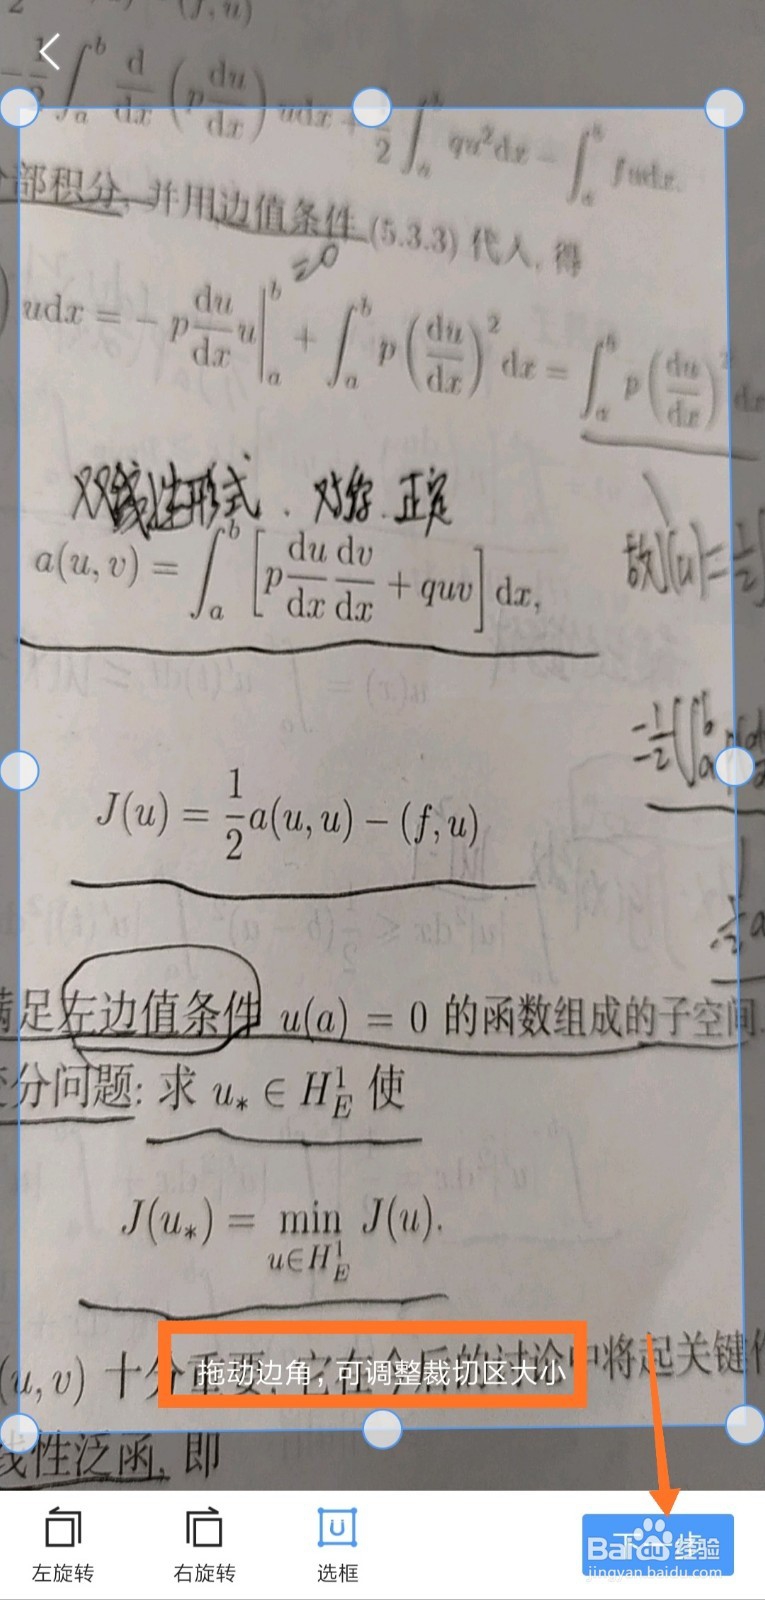 -\frac{1}{2}\int_a^b \frac{d}{dx}\left(p\frac{du}{dx}\right)udx + \frac{1}{2}\int_a^b qu^2dx - \int_a^b fudx.
部积分, 并用边值条件 (5.3.3) 代入, 得
=0
udx = - p\frac{du}{dx}u|_a^b + \int_a^b p\left(\frac{du}{dx}\right)^2 dx = \int_a^b p\left(\frac{du}{dx}\right)^2 dx
双线性形式、对称、正定
a(u,v) = \int_a^b \left[p\frac{du}{dx}\frac{dv}{dx} + quv\right]dx,
故J(u)=\frac{1}{2}
J(u) = \frac{1}{2}a(u,u) - (f,u)
满足左边值条件 u(a) = 0 的函数组成的子空间
变分问题: 求 u_* ∈ H_E^1 使
J(u_*) = \min_{u∈H_E^1} J(u).
(u,v) 十分重要, 它在今后的讨论中将起关键作
拖动边角，可调整裁切区大小
线性泛函, 即
左旋转
右旋转
选框
下一步
Baidu经验
jingyan.baidu.com